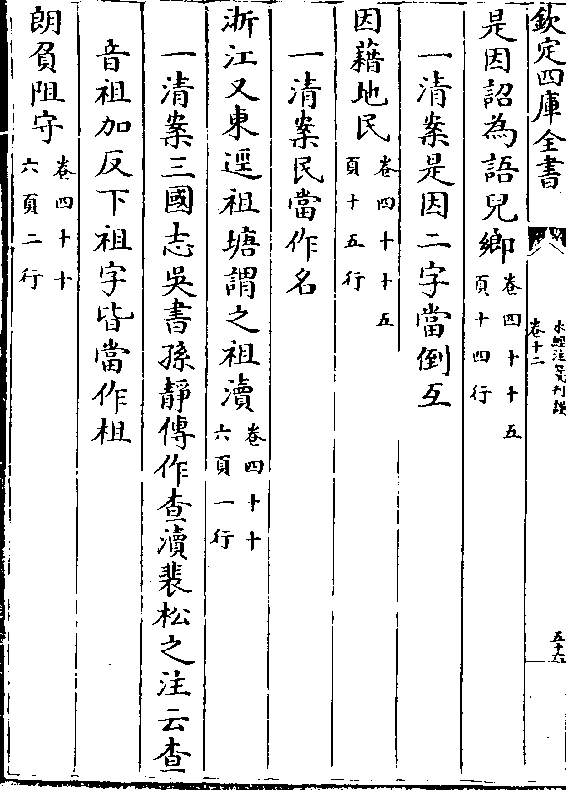 欽定四庫全書
水經注箋刊誤
卷十二
五十六
是因詔為語兒鄉卷四十十五頁十四行
一清案是因二字當倒互
因藉地民卷四十十五頁十五行
一清案民當作名
浙江又東逕祖塘謂之祖瀆卷四十十六頁一行
一清案三國志吳書孫靜傳作查瀆裴松之注云查
音祖加反下祖字皆當作柤
朗負阻守卷四十十六頁二行